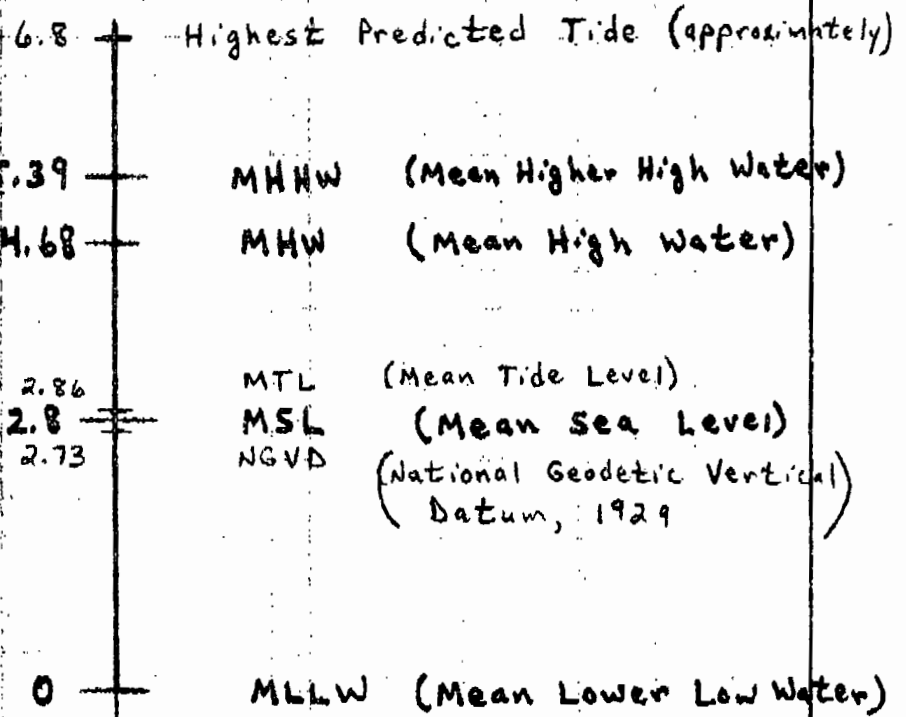 6.8 Highest Predicted Tide (approximately)
.39 MHHW (Mean Higher High Water)
4.68 MHW (Mean High Water)
2.86 MTL (Mean Tide Level)
2.8 MSL (Mean Sea Level)
2.73 NGVD (National Geodetic Vertical
Datum, 1929)
0 MLLW (Mean Lower Low Water)